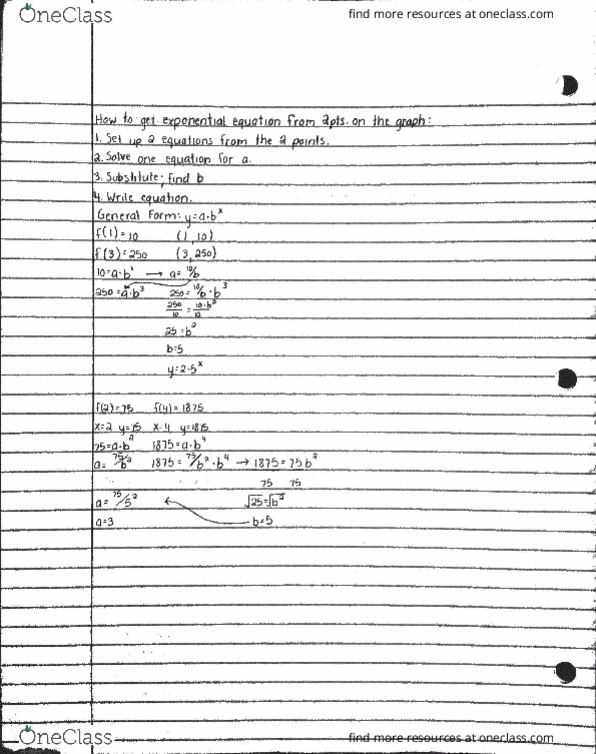 OneClass
find more resources at oneclass.com
How to get exponential equation from 2pts. on the graph:
1. Set up 2 equations from the 2 points.
2. Solve one equation for a.
3. Substitute; find b
4. Write equation.
General Form: y=a·b^x
f(1)=10 (1,10)
f(3)=250 (3,250)
10=a·b^1 → a=10/b
250=a·b^3 250=10/b·b^3
250/10=10·b^2/10
25=b^2
b=5
y=2·5^x
f(2)=75 f(4)=1875
x=2 y=75 x=4 y=1875
75=a·b^2 1875=a·b^4
a=75/b^2 1875=75/b^2·b^4 → 1875=75b^2
75 75
a=75/5^2 ← √25=√b^2
a=3 b=5
OneClass
find more resources at oneclass.com